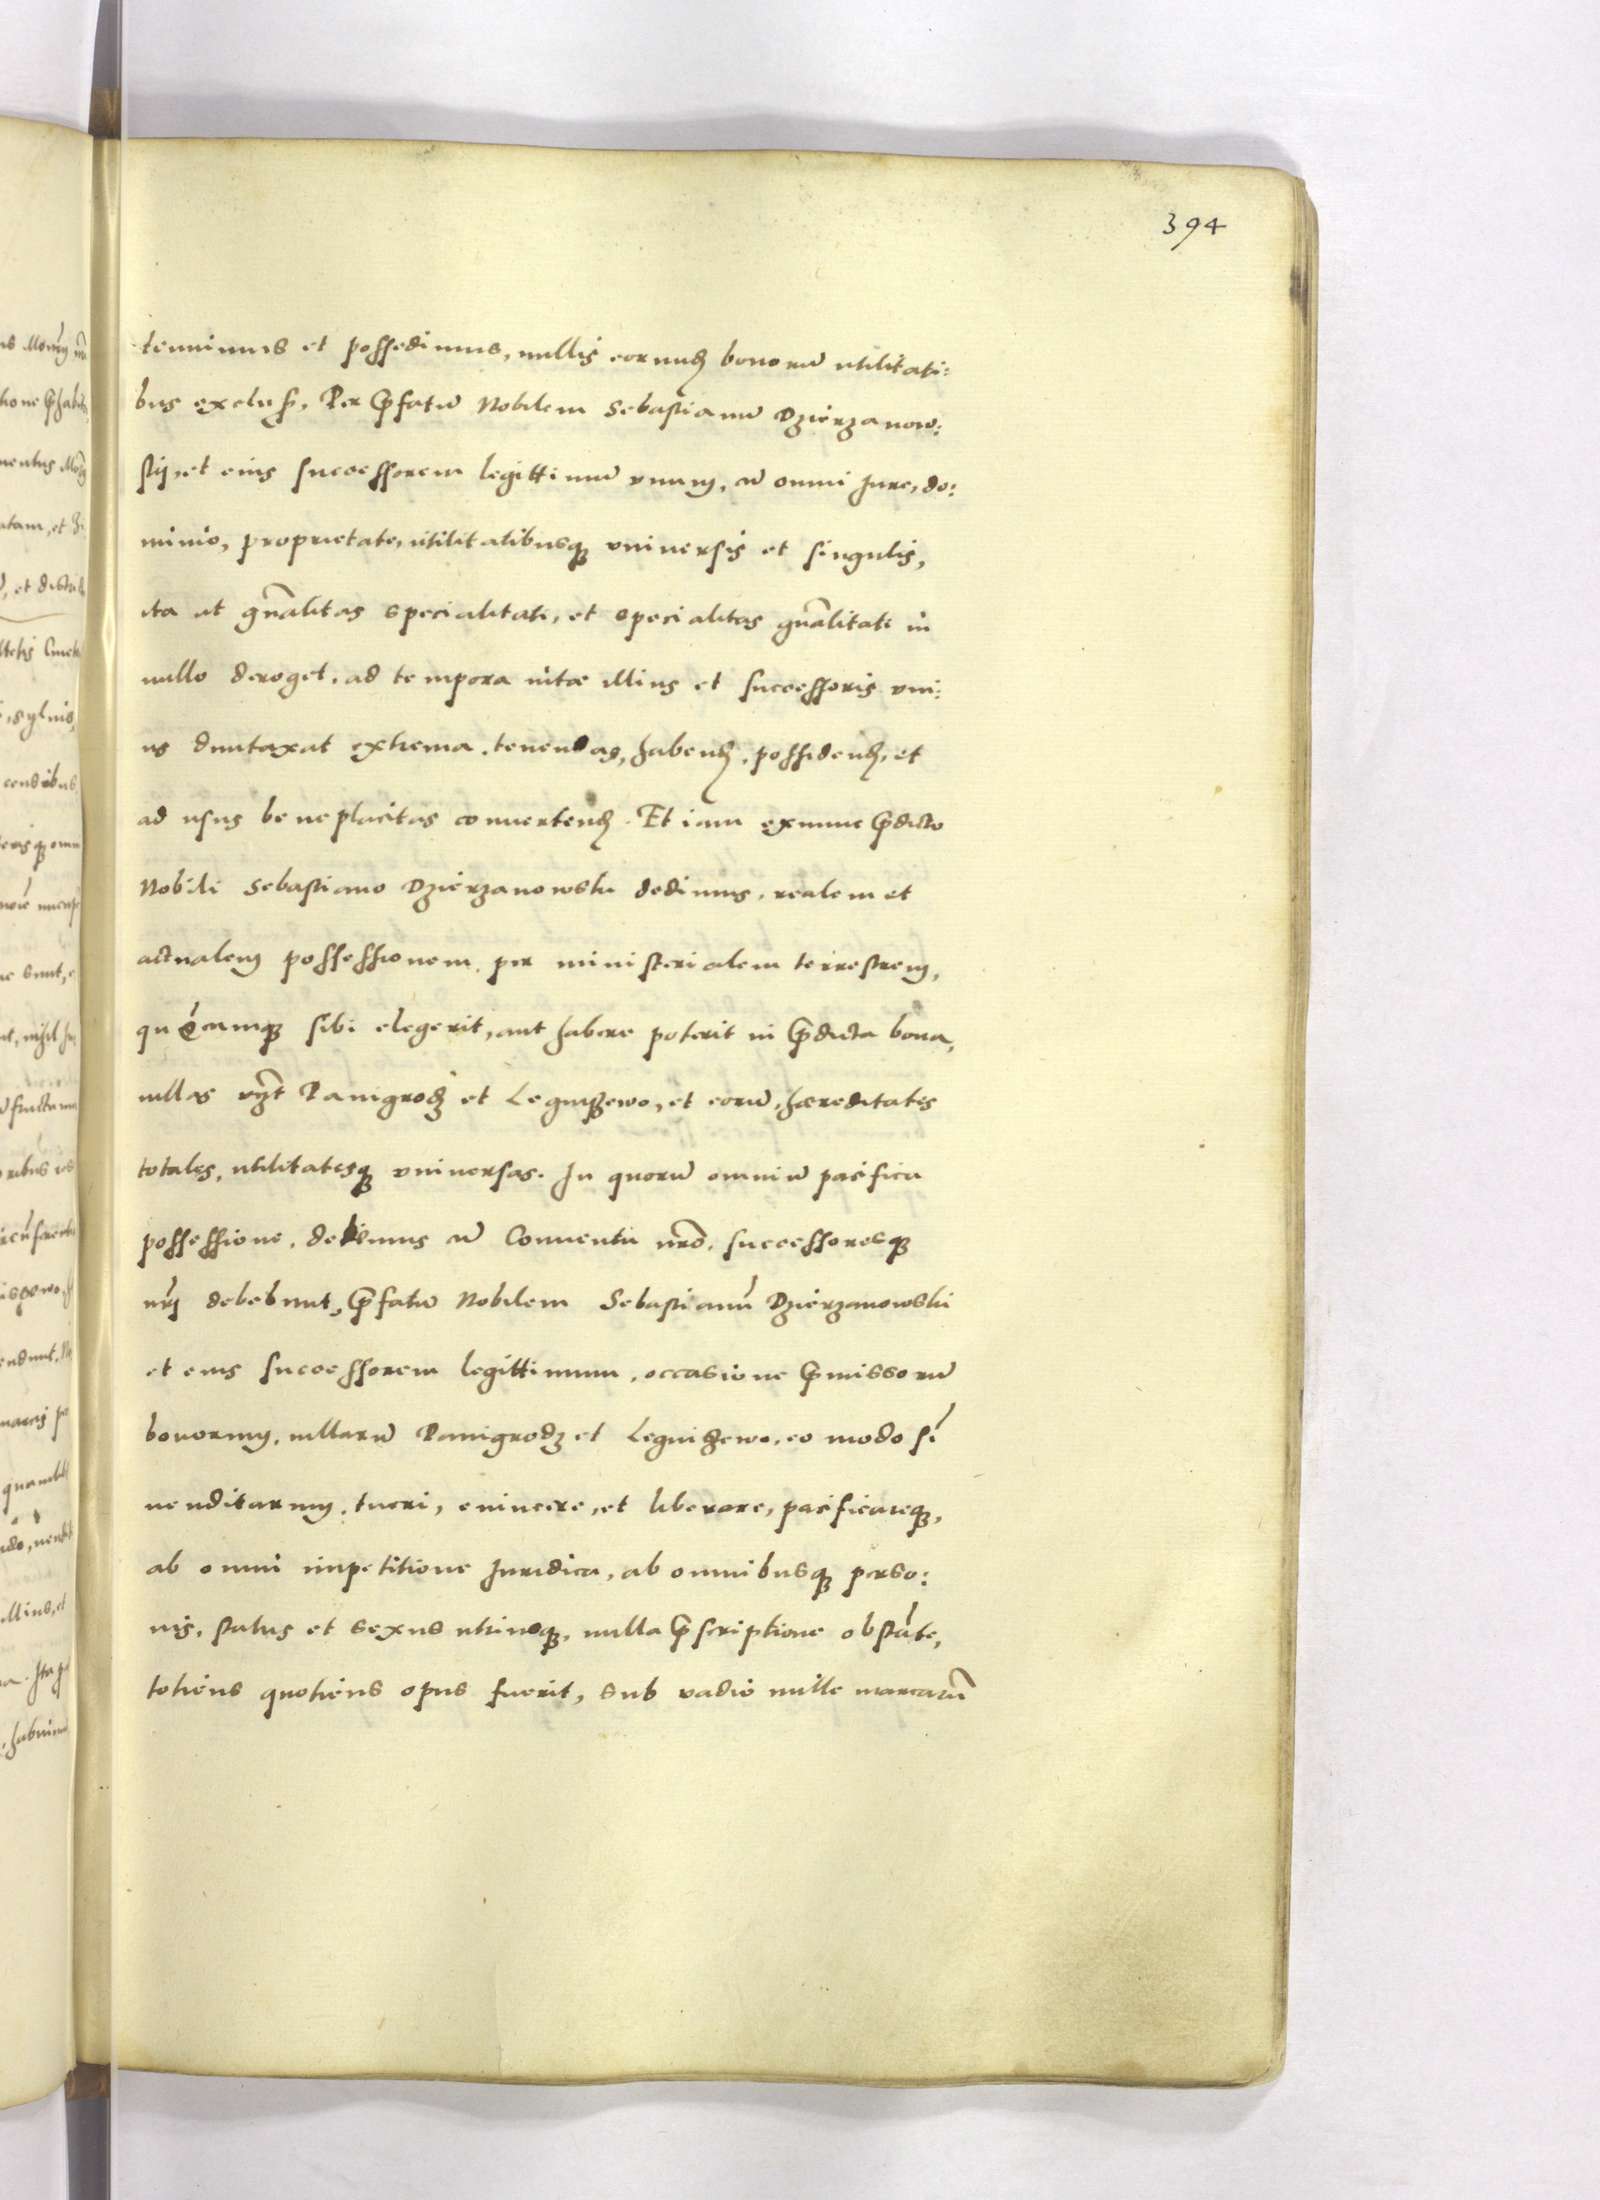 394
tenuimus et possedimus, nullis eorundẽ bonorũ utilitati:
bus exclus. Per p̃fatũ Nobilem Sebastianũ Dzierzanow:
skij, et eius successorem legittimũ vnum, cũ omni Jure, do:
minio, proprietate, utilitatibusq; vniuersis et singulis,
ita ut gñalitas specialitati, et specialitas gñalitati in
nullo deroget, ad tempora uitae illius et successoris vni:
us duntaxat extrema, tenendas, habend, possidend, et
ad usus beneplacitas conuertend. Et iam exnunc p̃dicto
Nobili Sebastiano Dzierzanowski dedimus, realem et
actualem possessionem, per ministerialem terrestrem,
quẽcumq; sibi elegerit, aut habere poterit in p̃dicta bona,
uillas vz̃t Panigrodz et Legniszewo, et eorũ, haereditates
totales, utilitatesq; vniuersas. In quorũ omniũ pacifica
possessione, debemus cũ Conuentu nr̃o, successoresq;
nr̃j debebunt, p̃fatũ Nobilem Sebastianũ Dzierzanowski
et eius successorem legittimum, occasione p̃missorũ
bonorum, uillarũ Panigrodz et Legniszewo, eo modo sĩ
uenditarum, tueri, euincere, et liberare, pacificareq;,
ab omni impetitione Juridica, ab omnibusq; perso:
nis, status et sexus utriusq;, nulla p̃scriptione obstãte,
totiens quotiens opus fuerit, sub vadio mille marcarũ